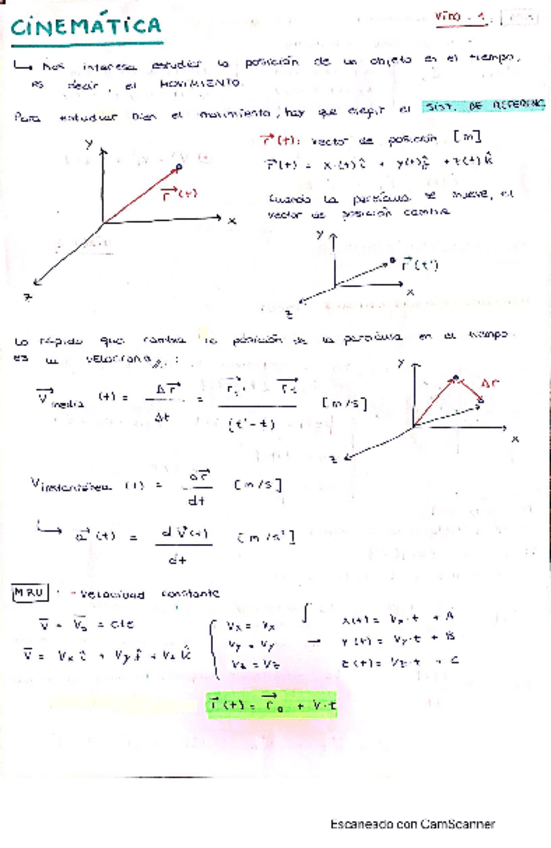 CINEMÁTICA
VÍDEO - 1
↳ Nos interesa estudiar la posición de un objeto en el tiempo,
es decir, el MOVIMIENTO.
Para estudiar bien el movimiento, hay que elegir el SIST. DE REFERENC
r⃗(t): vector de posición [m]
r⃗(t) = x(t) î + y(t) ĵ + z(t) k̂
Y
r⃗(t)
X
Z
Cuando la partícula se mueve, el
vector de posición cambia
Y
r⃗(t')
X
Z
Lo rápido que cambia la posición de la partícula en el tiempo
es la velocidad:
V⃗media (t) = Δr⃗ / Δt = / (t' - t) [m/s]
Y
Δr
X
Z
Vinstantánea (t) = dr⃗ / dt [m/s]
↳ a⃗(t) = d V⃗(t) / dt [m/s²]
MRU: - velocidad constante
v̄ = v̄₀ = cte
v̄ = Vx î + Vy ĵ + Vz k̂
Vx = Vx
Vy = Vy
Vz = Vz
∫
→
x(t) = Vx·t + A
y(t) = Vy·t + B
z(t) = Vz·t + C
r⃗(t) = r⃗₀ + v·t
Escaneado con CamScanner